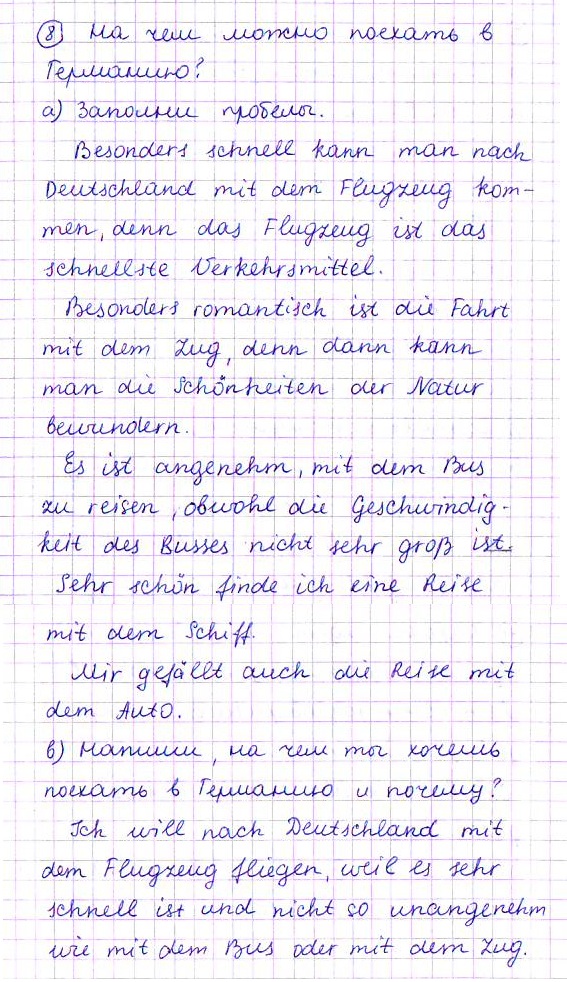 8 На чем можно поехать в
Германию?
а) Заполни пробелы.
Besonders schnell kann man nach
Deutschland mit dem Flugzeug kom-
men, denn das Flugzeug ist das
schnellste Verkehrsmittel.
Besonders romantisch ist die Fahrt
mit dem Zug, denn dann kann
man die Schönheiten der Natur
bewundern.
Es ist angenehm, mit dem Bus
zu reisen, obwohl die Geschwindig-
keit des Busses nicht sehr groß ist.
Sehr schön finde ich eine Reise
mit dem Schiff.
Mir gefällt auch die Reise mit
dem Auto.
в) Напиши, на чем ты хочешь
поехать в Германию и почему?
Ich will nach Deutschland mit
dem Flugzeug fliegen, weil es sehr
schnell ist und nicht so unangenehm
wie mit dem Bus oder mit dem Zug.